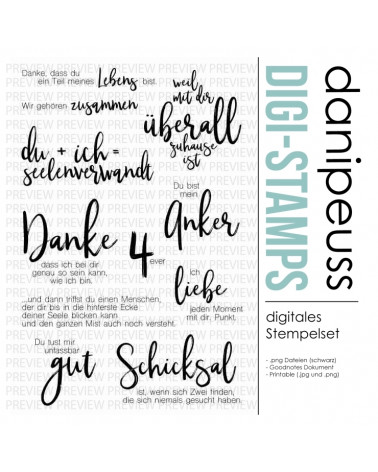 Danke, dass du
ein Teil meines Lebens bist.
weil
mit dir
überall
zuhause
ist
Wir gehören zusammen
du + ich =
seelenverwandt
Du bist
mein
Anker
Danke
dass ich bei dir
genau so sein kann,
wie ich bin.
4
ever
Ich
liebe
jeden Moment
mit dir. Punkt.
...und dann triffst du einen Menschen,
der dir bis in die hinterste Ecke
deiner Seele blicken kann
und den ganzen Mist auch noch versteht.
Du tust mir
unfassbar
gut
Schicksal
ist, wenn sich Zwei finden,
die sich niemals gesucht haben.
PREVIEW PREVIEW PREVIEW PREVIEW PREVIEW
danipeuss
DIGI-STAMPS
digitales
Stempelset
- .png Dateien (schwarz)
- Goodnotes Dokument
- Printable (.jpg und .png)